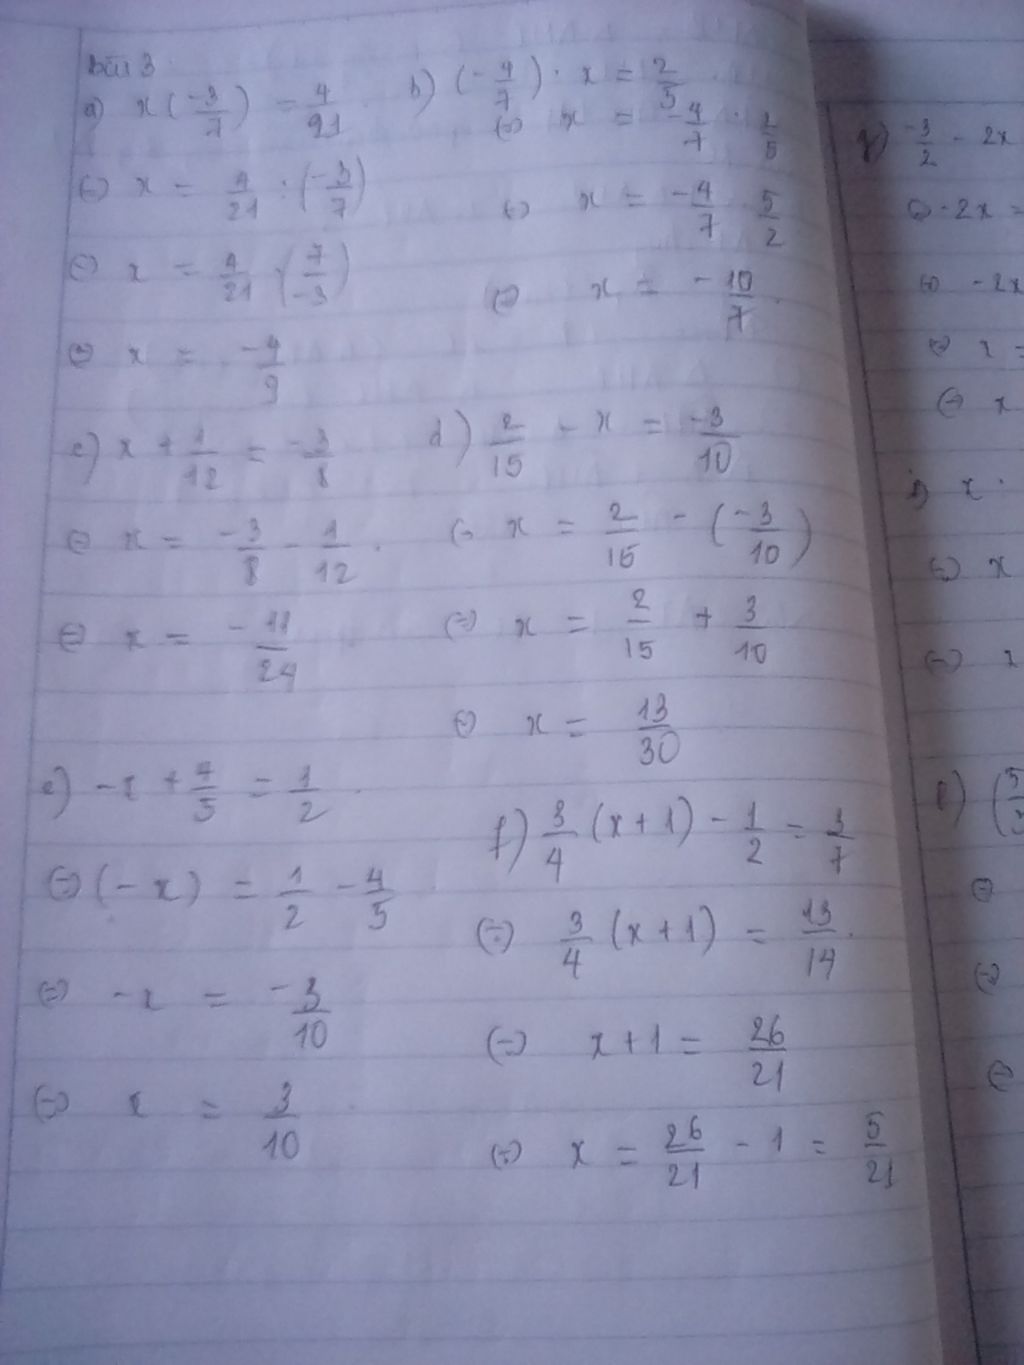 Bài 3
a) x(-3/7) = 4/21
(=) x = 4/21 : (-3/7)
(=) x = 4/21 . (7/-3)
(=) x = -4/9
b) (-4/7) : x = 2/5
(=) x = -4/7 : 2/5
(=) x = -4/7 . 5/2
(=) x = -10/7
c) x + 1/12 = -3/8
(=) x = -3/8 - 1/12
(=) x = -11/24
d) 2/15 - x = -3/10
(=) x = 2/15 - (-3/10)
(=) x = 2/15 + 3/10
(=) x = 13/30
e) -x + 4/5 = 1/2
(=) (-x) = 1/2 - 4/5
(=) -x = -3/10
(=) x = 3/10
f) 3/4 (x+1) - 1/2 = 3/7
(=) 3/4 (x+1) = 13/14
(=) x+1 = 26/21
(=) x = 26/21 - 1 = 5/21
g) -3/2 - 2x
(=) -2x =
(=) -2x
(=) x =
(=) x
x .
(=) x
(=) x
(=)
(=)
(=)